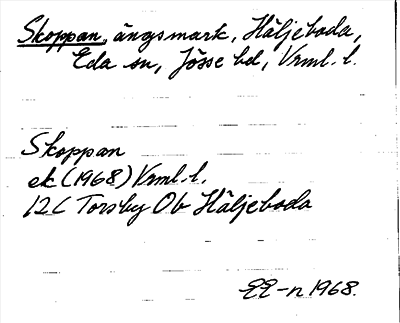 Skoppan, ängsmark, Häljeboda,
Eda sn, Jösse hd, Vrml. l.
Skoppan
ek (1968) Vrml. l.
12C Torsby Ob Häljeboda
EE-n 1968.